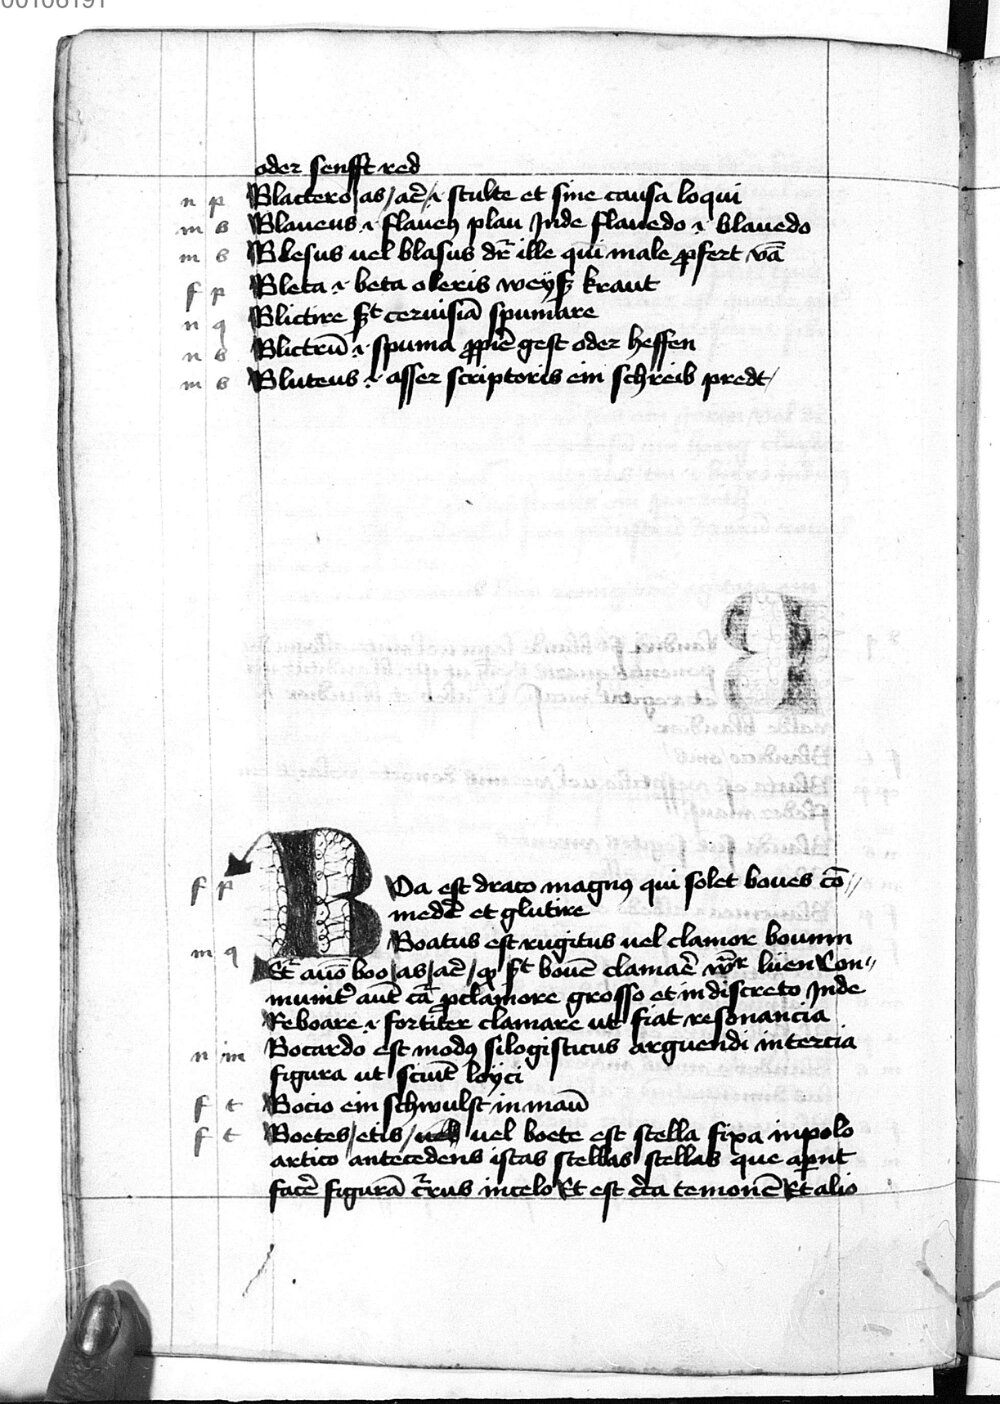 00106191
oder senfft red
n p Blactero / as / aē / ⁊ stulte et sine causa loqui
m s Blaueus ⁊ flaueꝰ plau Inde flauedo ⁊ blauedo
m s Blesus uel blasus dr̄ ille qui male ꝓfert vā
f p Bleta ⁊ beta oleris weyß kraut
n q Blictire ß̄t ceruisiā spumare
n s Blictrū ⁊ spuma ꝓpiē gest oder heffen
m s Bluteus ⁊ asser scriptoris ein schreib predt
f p Boa est draco magnꝰ qui solet boues cō
medē et glutire
m q Boatus est rugitus uel clamor bouum
Et̄ boo / as / aē / ß̄t bouē clamaē lüen Con
munit̄ aūt cā ꝓclamore grosso et indiscreto Inde
Reboare ⁊ fortiter clamare ut fiat resonancia
n m Bocardo est modꝰ silogisticus arguendi in tercia
figura ut sciūt loyci
f t Bocio ein schwulst in
f t Boetes / etis / uel boete est stella fixa in polo
artico antecedens istas stellas stellas que
facē figurā in celo Et est temonē Et alio